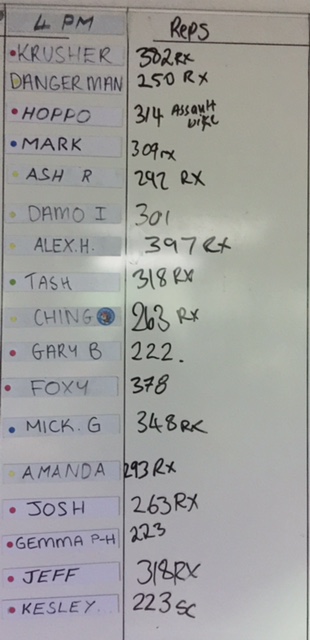 4 PM Reps
KRUSHER 382RX
DANGERMAN 250 RX
HOPPO 314 Assault
BIKE
MARK 309rx
ASH R 292 RX
DAMO I 301
ALEX.H. 397 RX
TASH 318 RX
CHING 263 RX
GARY B 222.
FOXY 378
MICK. G 348RX
AMANDA 293 RX
JOSH 263RX
GEMMA P-H 223
JEFF 318RX
KESLEY. 223 SC